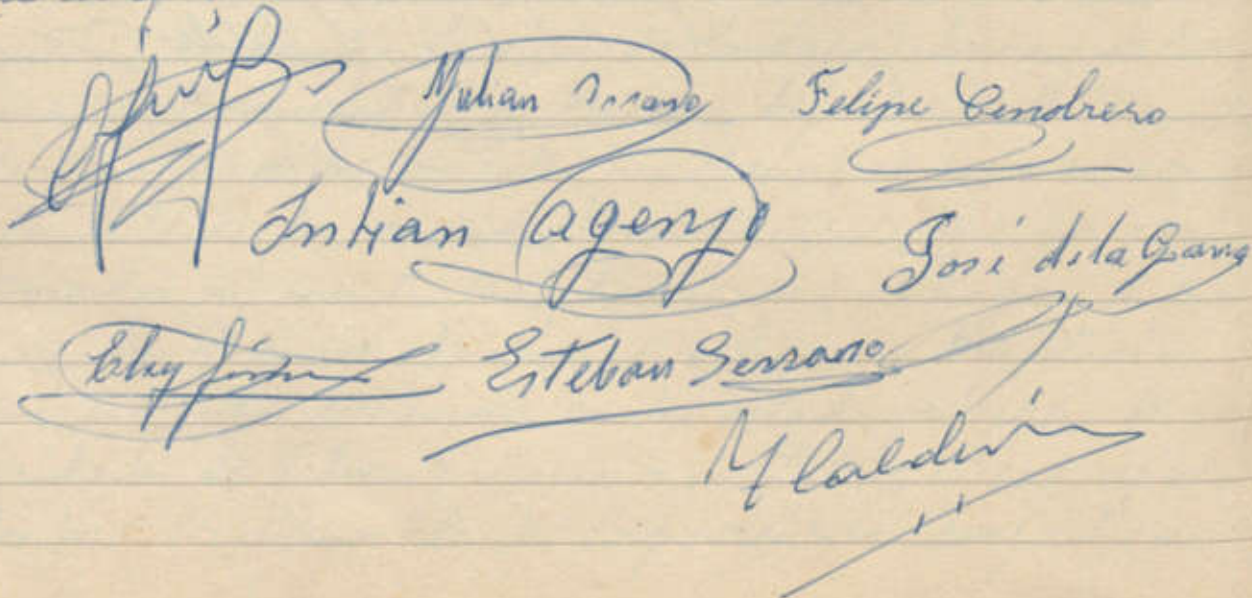 Julian Serrano Felipe Cendrero
Julian Cagenjo José de la Cama
Eloy Jiménez Esteban Serrano
M Calderón